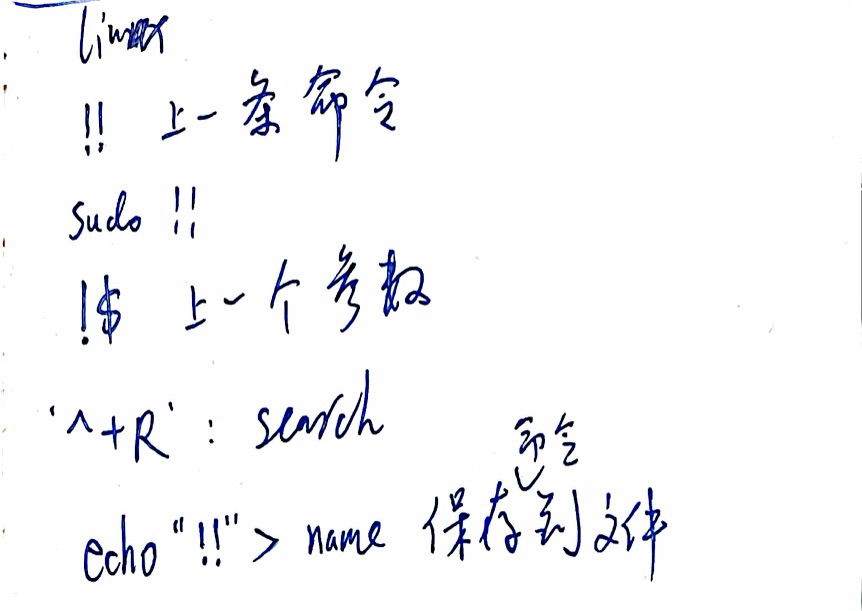 linux
!! 上一条命令
sudo !!
!$ 上一个参数
'^+R' : search
echo "!!" > name 保存命令到文件